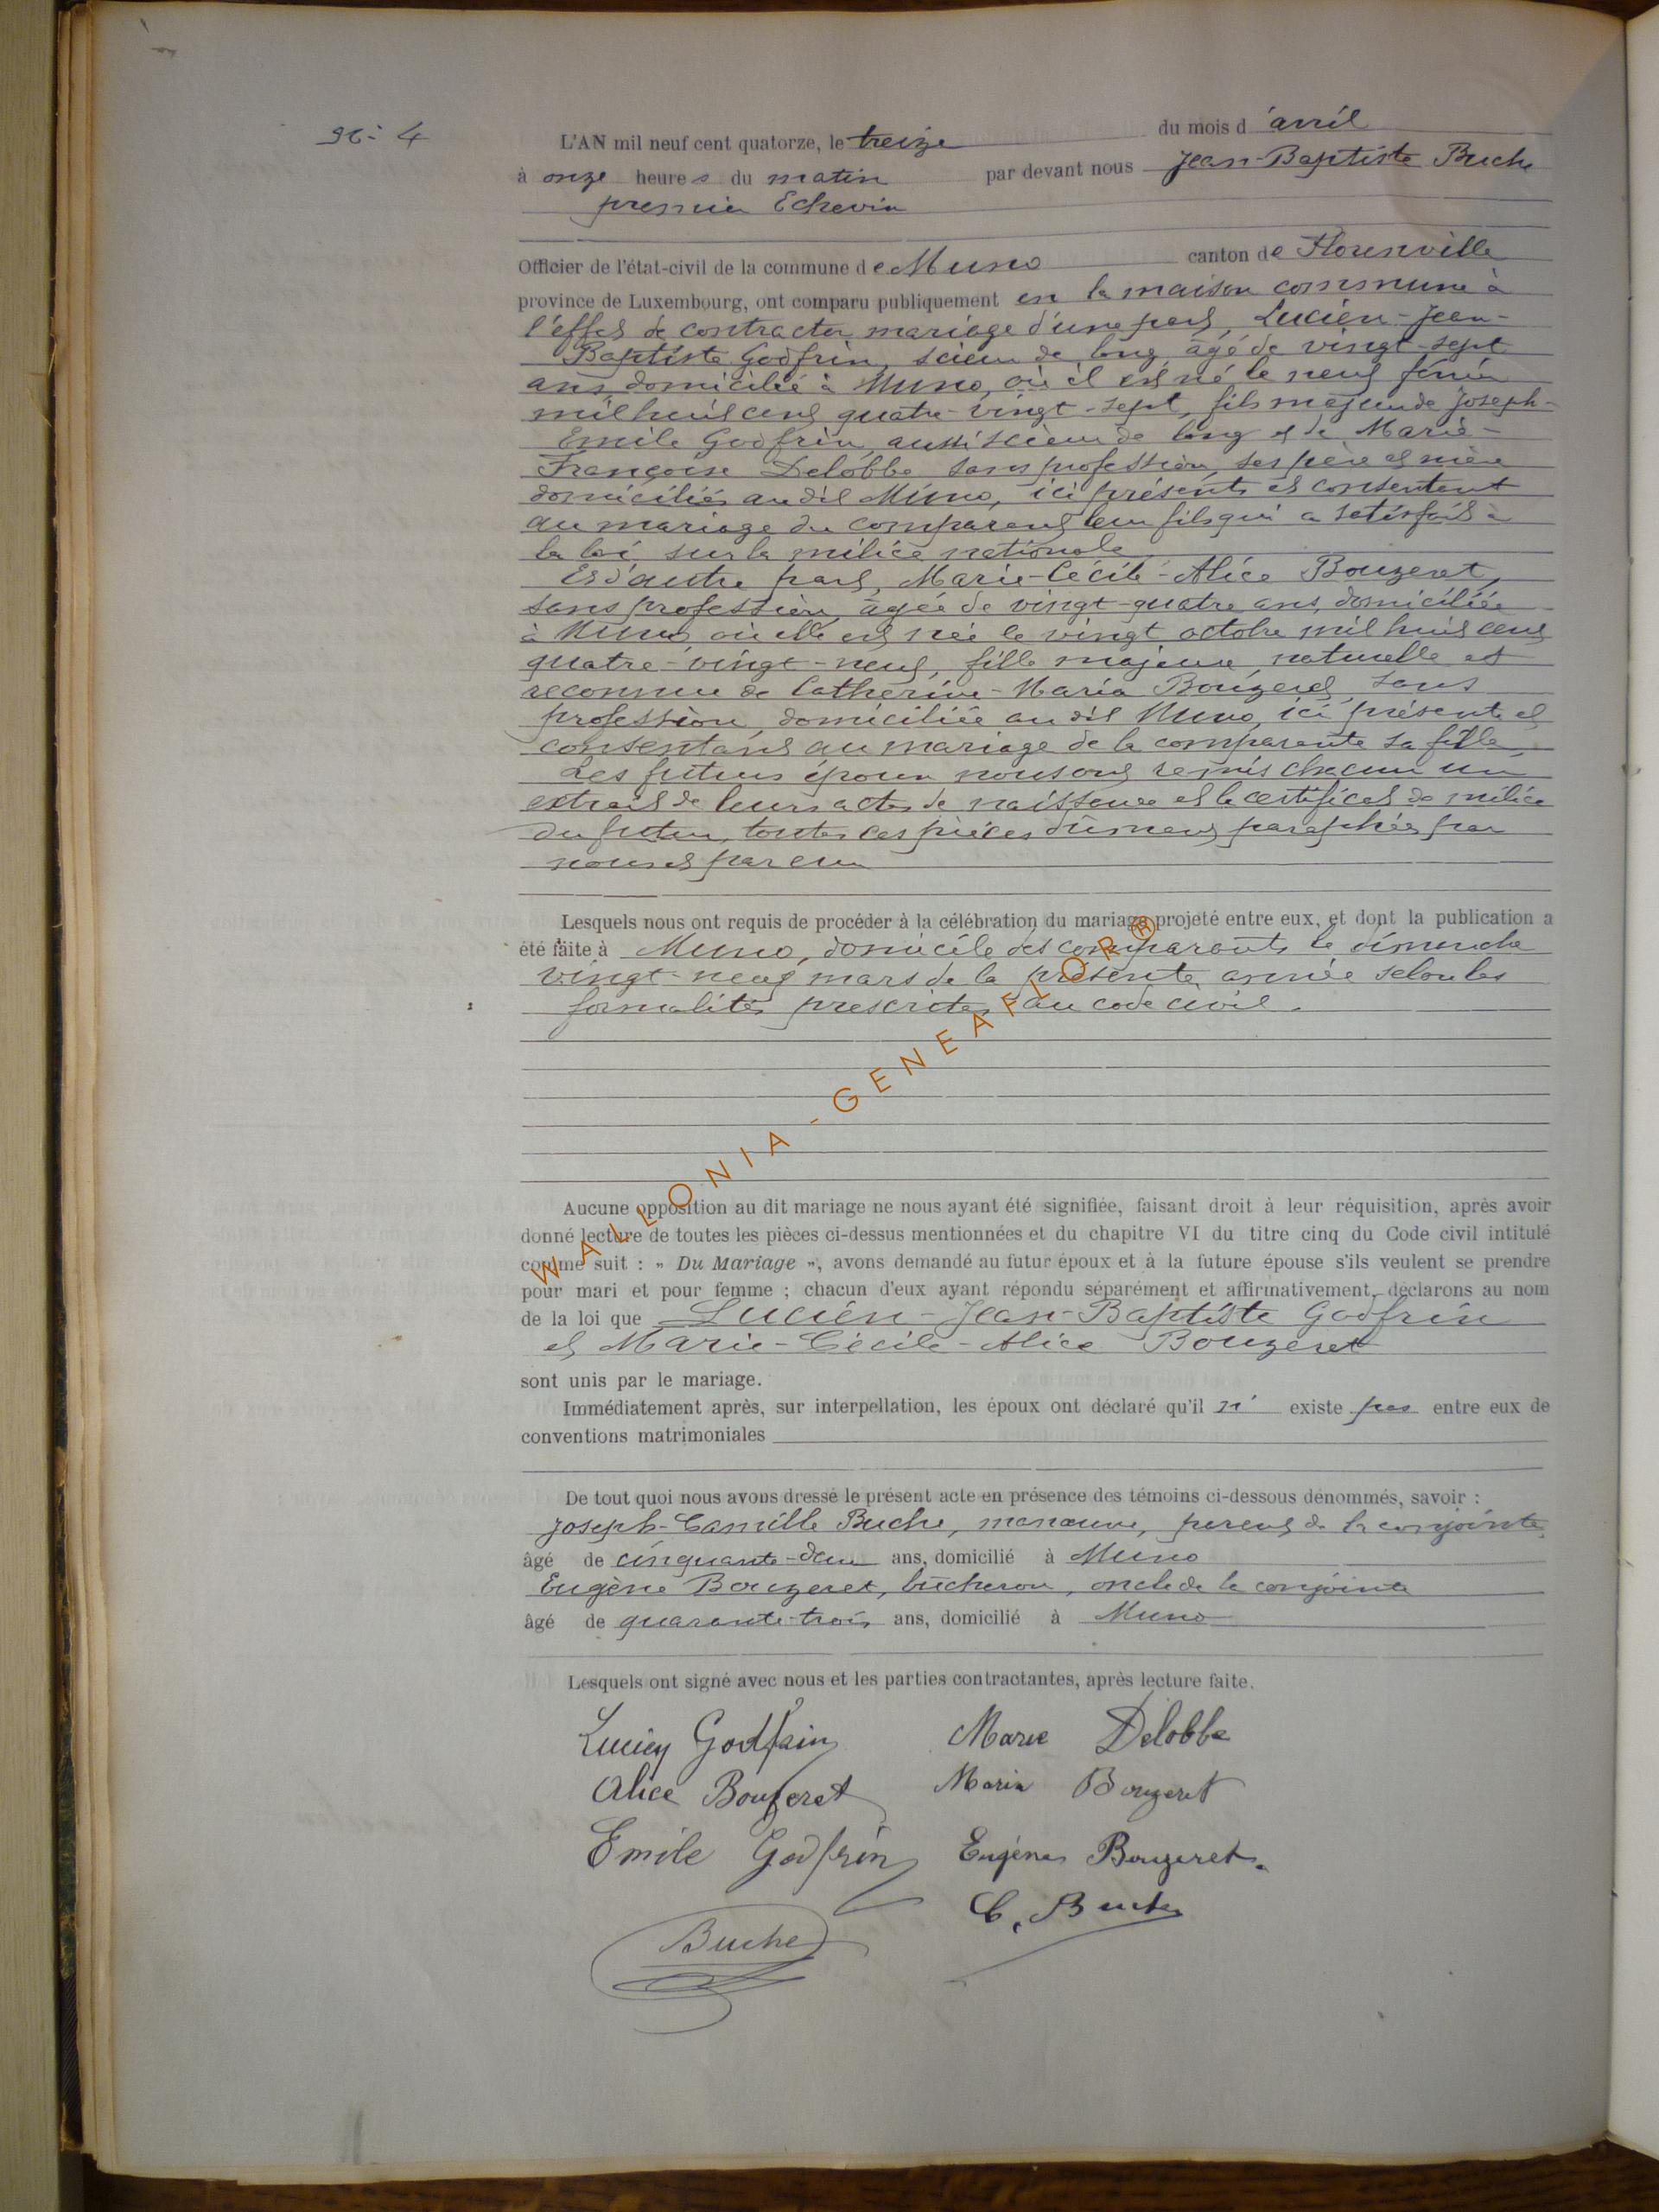 N° 4
L'AN mil neuf cent quatorze, le treize du mois d'avril
à onze heures du matin par devant nous Jean-Baptiste Buche
premier Echevin
Officier de l'état-civil de la commune de Muno canton de Florenville
province de Luxembourg, ont comparu publiquement en la maison commune à
l'effet de contracter mariage d'une part, Lucien-Jean-
Baptiste Godfrin, scieur de long, âgé de vingt-sept
ans, domicilié à Muno, où il est né le neuf février
mil huit cent quatre-vingt-sept, fils majeur de Joseph-
Emile Godfrin, aussi scieur de long et de Marie-
Françoise Delobbe sans profession, ses père et mère
domiciliés au dit Muno, ici présents et consentant
au mariage du comparant leur fils qui a satisfait à
la loi sur la milice nationale
Et d'autre part, Marie-Cécile-Alice Bouzeret,
sans profession, âgée de vingt-quatre ans, domiciliée
à Muno, où elle est née le vingt octobre mil huit cent
quatre-vingt-neuf, fille majeure naturelle et
reconnue de Catherine-Maria Bouzeret, sans
profession, domiciliée au dit Muno, ici présente et
consentant au mariage de la comparante sa fille.
Les futurs époux nous ont remis chacun un
extrait de leurs actes de naissance et le certificat de milice
du futur, toutes ces pièces dûment paraphées par
nous et par eux
Lesquels nous ont requis de procéder à la célébration du mariage projeté entre eux, et dont la publication a
été faite à Muno, domicile des comparants le dimanche
vingt-neuf mars de la présente année selon les
formalités prescrites au code civil.
Aucune opposition au dit mariage ne nous ayant été signifiée, faisant droit à leur réquisition, après avoir
donné lecture de toutes les pièces ci-dessus mentionnées et du chapitre VI du titre cinq du Code civil intitulé
comme suit : » Du Mariage », avons demandé au futur époux et à la future épouse s'ils veulent se prendre
pour mari et pour femme ; chacun d'eux ayant répondu séparément et affirmativement, déclarons au nom
de la loi que Lucien-Jean-Baptiste Godfrin
et Marie-Cécile-Alice Bouzeret
sont unis par le mariage.
Immédiatement après, sur interpellation, les époux ont déclaré qu'il n' existe pas entre eux de
conventions matrimoniales
De tout quoi nous avons dressé le présent acte en présence des témoins ci-dessous dénommés, savoir :
Joseph-Camille Buche, manœuvre, parent de la conjointe,
âgé de cinquante-deux ans, domicilié à Muno
Eugène Bouzeret, bûcheron, oncle de la conjointe
âgé de quarante-trois ans, domicilié à Muno
Lesquels ont signé avec nous et les parties contractantes, après lecture faite.
Lucien Godfrin Marie Delobbe
Alice Bouzeret Maria Bouzeret
Emile Godfrin Eugène Bouzeret.
C. Buche
Buche
WALLONIA-GENEAFLOR®